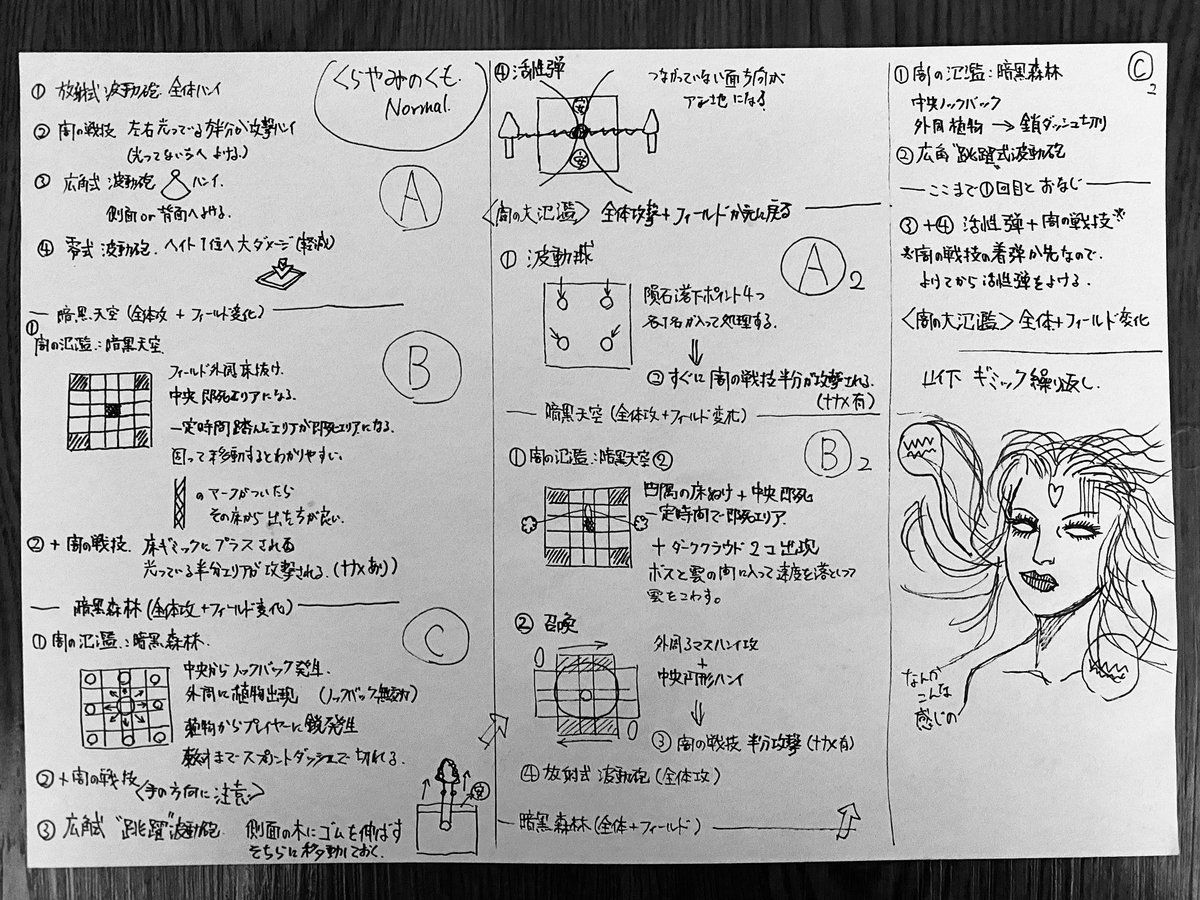 くらやみのくも
Normal.
① 放射式 波動砲 全体ハンイ
② 闇の戦技 左右光っている方半分が攻撃ハンイ
(光ってない方へよける。)
③ 広角式 波動砲 ハンイ.
側面or背面へよける.
A
④ 零式 波動砲. ヘイト1位へ大ダメージ(軽減)
暗黒天空(全体攻+フィールド変化)
①
闇の氾濫:暗黒天空
B
フィールド外周床抜け.
中央即死エリアになる.
一定時間踏んだエリアが即死エリアになる.
回って移動するとわかりやすい.
のマークがついたら
その床から出た方が良い.
②+闇の戦技. 床ギミックにプラスされる
光っている半分エリアが攻撃される.(ナナメあり)
暗黒森林(全体攻+フィールド変化)
C
① 闇の氾濫:暗黒森林.
中央からノックバック発生.
外周に植物出現 (ノックバック無効可)
植物からプレイヤーに鎖発生
数才までスプリントダッシュで切れる.
②+闇の戦技
〈手の方向に注意〉
安
③ 広角式“跳躍”波動砲. 側面の木にゴムを伸ばす
そちらに移動しておく.
④活性弾
つながっていない面方向が
アン地になる.
安
安
〈闇の大氾濫〉 全体攻撃+フィールドが元に戻る
① 波動球
A2
隕石落下ポイント4つ
各1名が入って処理する.
② すぐに闇の戦技半分が攻撃される.
(ナナメ有)
暗黒天空(全体攻+フィールド変化)
B2
①闇の氾濫:暗黒天空②
四隅の床ぬけ+中央即死
一定時間で即死エリア.
+ダーククラウド2コ出現
ボスと雲の間に入って速度を落としつつ
雲をこわす。
② 召喚
外周3マスハンイ攻
+
中央円形ハンイ
③ 闇の戦技 半分攻撃(ナナメ有)
④ 放射式 波動砲(全体攻)
暗黒森林(全体+フィールド)
C2
① 闇の氾濫:暗黒森林
中央ノックバック
外周植物→鎖ダッシュ切り
② 広角“跳躍式”波動砲
ここまで①回目とおなじ
③+④ 活性弾+闇の戦技※
※闇の戦技の着弾が先なので.
よけてから活性弾をよける.
〈闇の大氾濫〉全体+フィールド変化
以下 ギミック繰り返し.
なんか
こんな
感じの